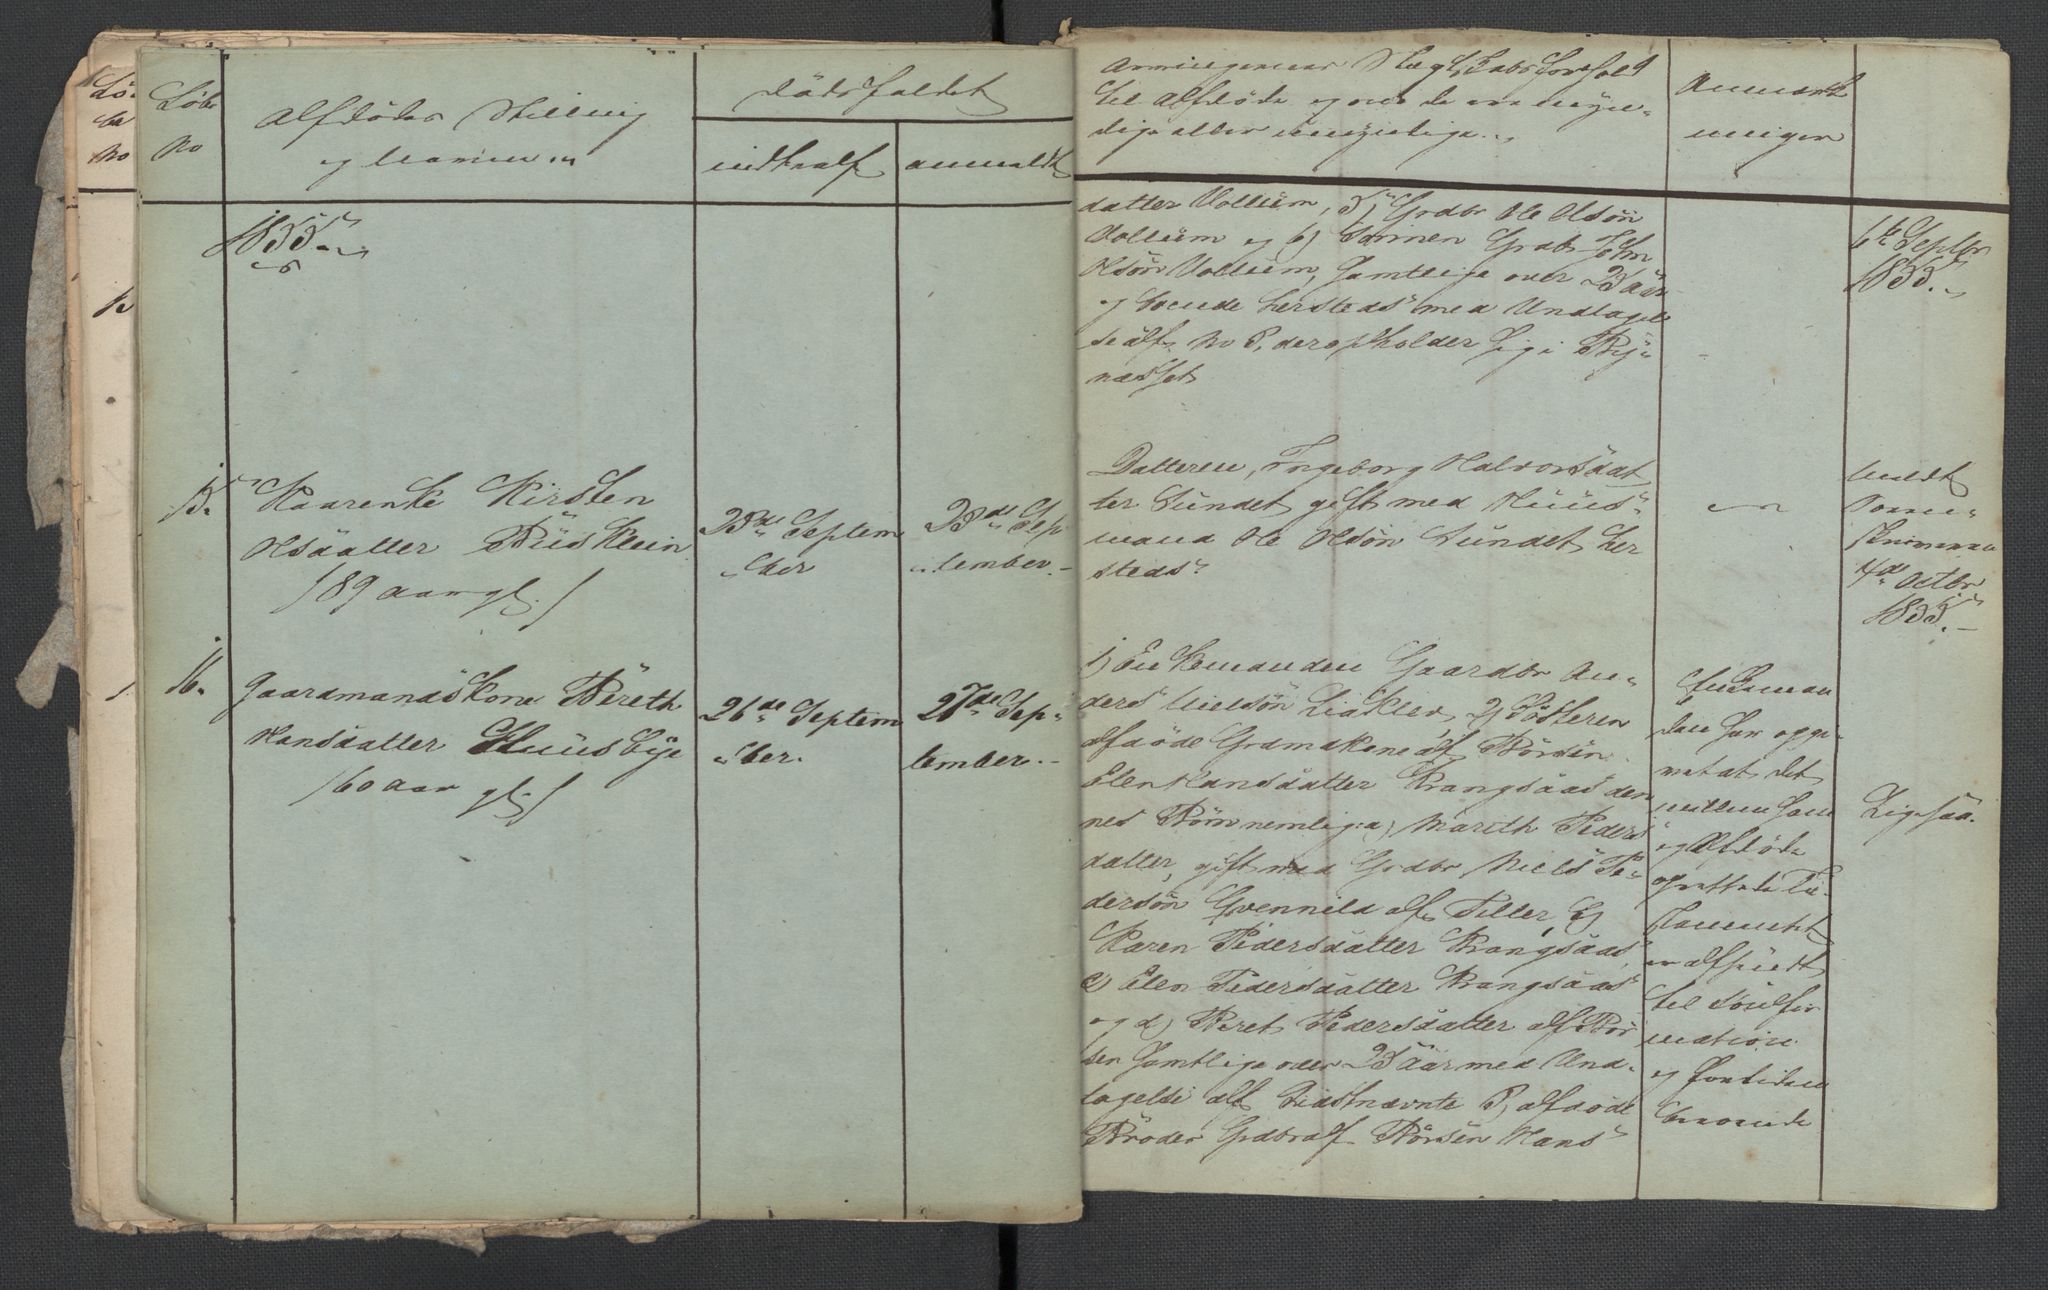 Løbe
No
Afdødes Stilling
og Navn
Dødsfaldet
indtraf
anmeldt
1855.
15.
Kaarenke Kirsten
Olsdatter Büsklein
/89 aar gl./
23de Septem
ber
23de Sep
tember.
16.
Gaardmandskone Bereth
Hansdatter Huusbye
/60 aar gl./
26de Septem
ber.
27de Sep-
tember.
Arvingernes Slægtskabsforhold
til Afdøde og om de ere myn-
dige eller umyndige.
Anmærk
ninger
datter Vollum, 5) Grdbr Ole Olsøn
Vollum og 6) Sønnen Grdb John
Olsøn Vollum, samtlige over 25 Aar
og boende hersteds med Undtagel
se af No 3, der opholder sig i Bÿ-
næsset
6te Septbr
1855.
Datteren, Ingeborg Halvorsdat
ter Sundet gift med Huus-
mand Ole Olsøn Sundet her
steds.
meldt
Soren-
skriveren
4de Octbr
1855.
1) Enkemanden Gaardbr An-
ders Nielsøn Liaklev, 2) Søsteren
afdøde Grdmdkone af Børsen
Elen Hansdatter Krangsaas den
nes Børn nemlig: a) Marith Peders
datter, gift med Grdbr Niels Pe-
dersøn Qvennild af Tiller b)
Karen Pedersdatter Krangsaas,
c) Elen Pedersdatter Krangsaas
og d) Beret Pedersdatter af Bør
sen samtlige over 25 Aar med Und-
tagelse af Sidstnævnte 3, afdøde
Broder Grdbr af Børsen Hans
Enkeman
den har opgi-
vet at det
mellem ham
og Afdøde
oprettede Te-
stamente
er afsendt
til Confir
mation
og fortiden
beroende
Ligesaa.